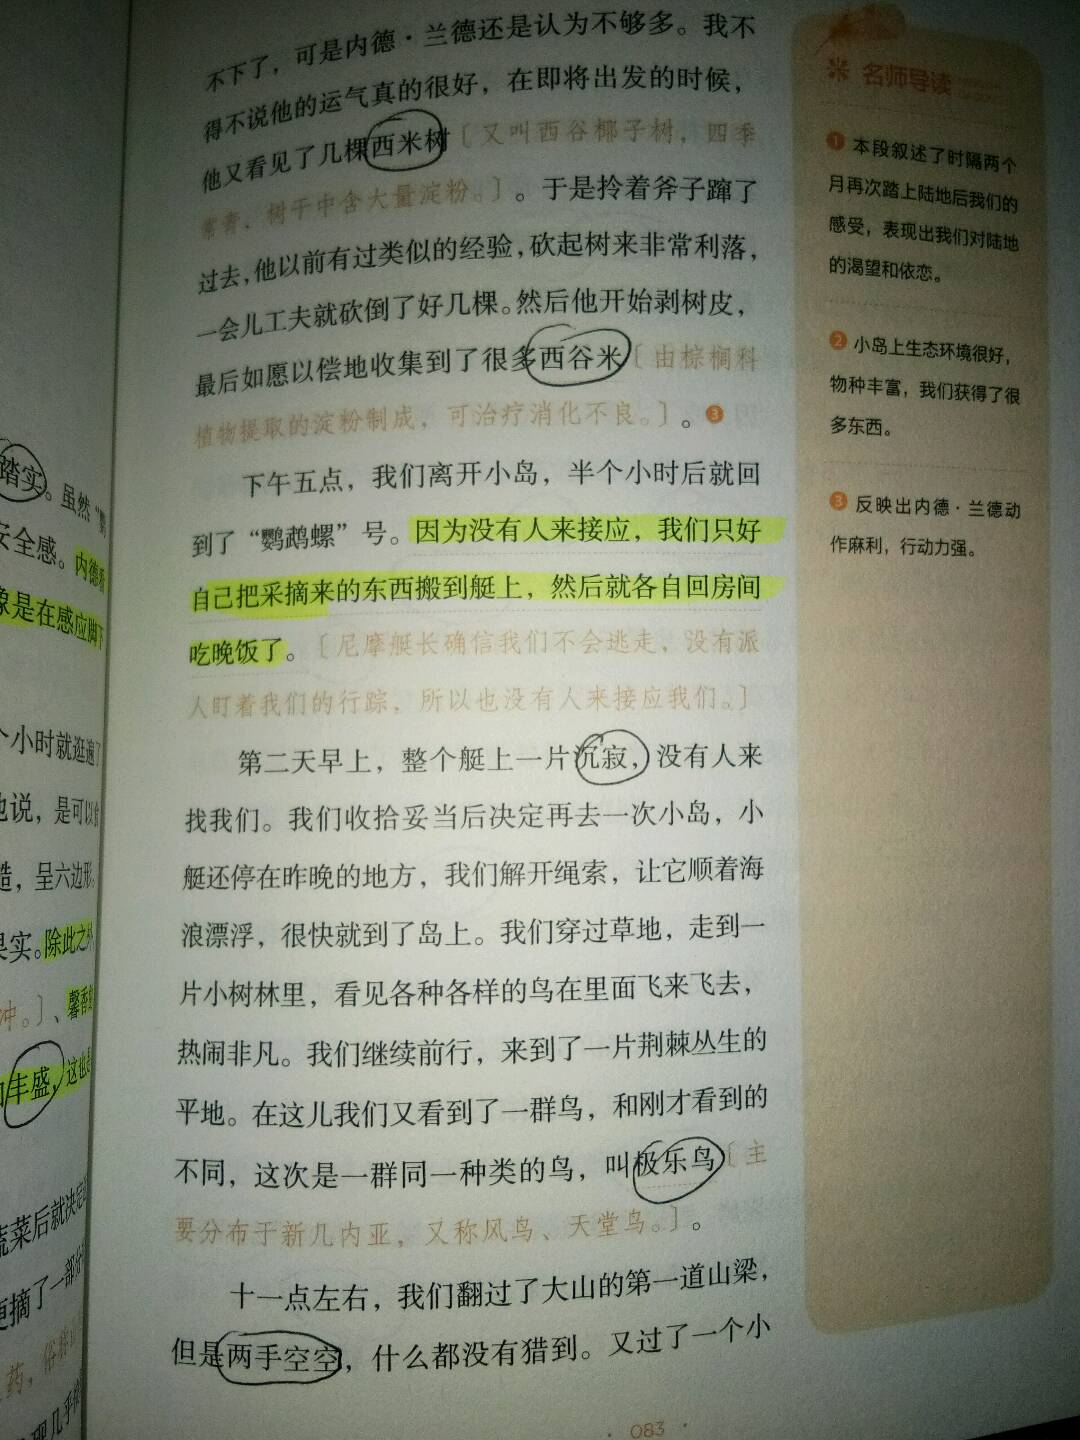 踏实。虽然“鹦
安全感。内德
像是在感应脚下
个小时就逛遍了
也说，是可以
糙，呈六边形。
果实。除此之外
冲。〕、馨香
丰盛，这也
蔬菜后就决定
摘了一部分
药，俗称
不下了，可是内德·兰德还是认为不够多。我不
得不说他的运气真的很好，在即将出发的时候，
他又看见了几棵西米树〔又叫西谷椰子树，四季
常青，树干中含大量淀粉。〕。于是拎着斧子蹿了
过去，他以前有过类似的经验，砍起树来非常利落，
一会儿工夫就砍倒了好几棵。然后他开始剥树皮，
最后如愿以偿地收集到了很多西谷米〔由棕榈科
植物提取的淀粉制成，可治疗消化不良。〕。❸
下午五点，我们离开小岛，半个小时后就回
到了“鹦鹉螺”号。因为没有人来接应，我们只好
自己把采摘来的东西搬到艇上，然后就各自回房间
吃晚饭了。〔尼摩艇长确信我们不会逃走，没有派
人盯着我们的行踪，所以也没有人来接应我们。〕
第二天早上，整个艇上一片沉寂，没有人来
找我们。我们收拾妥当后决定再去一次小岛，小
艇还停在昨晚的地方，我们解开绳索，让它顺着海
浪漂浮，很快就到了岛上。我们穿过草地，走到一
片小树林里，看见各种各样的鸟在里面飞来飞去，
热闹非凡。我们继续前行，来到了一片荆棘丛生的
平地。在这儿我们又看到了一群鸟，和刚才看到的
不同，这次是一群同一种类的鸟，叫极乐鸟〔主
要分布于新几内亚，又称风鸟、天堂鸟。〕。
十一点左右，我们翻过了大山的第一道山梁，
但是两手空空，什么都没有猎到。又过了一个小
·083·
名师导读
❶ 本段叙述了时隔两个
月再次踏上陆地后我们的
感受，表现出我们对陆地
的渴望和依恋。
❷ 小岛上生态环境很好，
物种丰富，我们获得了很
多东西。
❸ 反映出内德·兰德动
作麻利，行动力强。